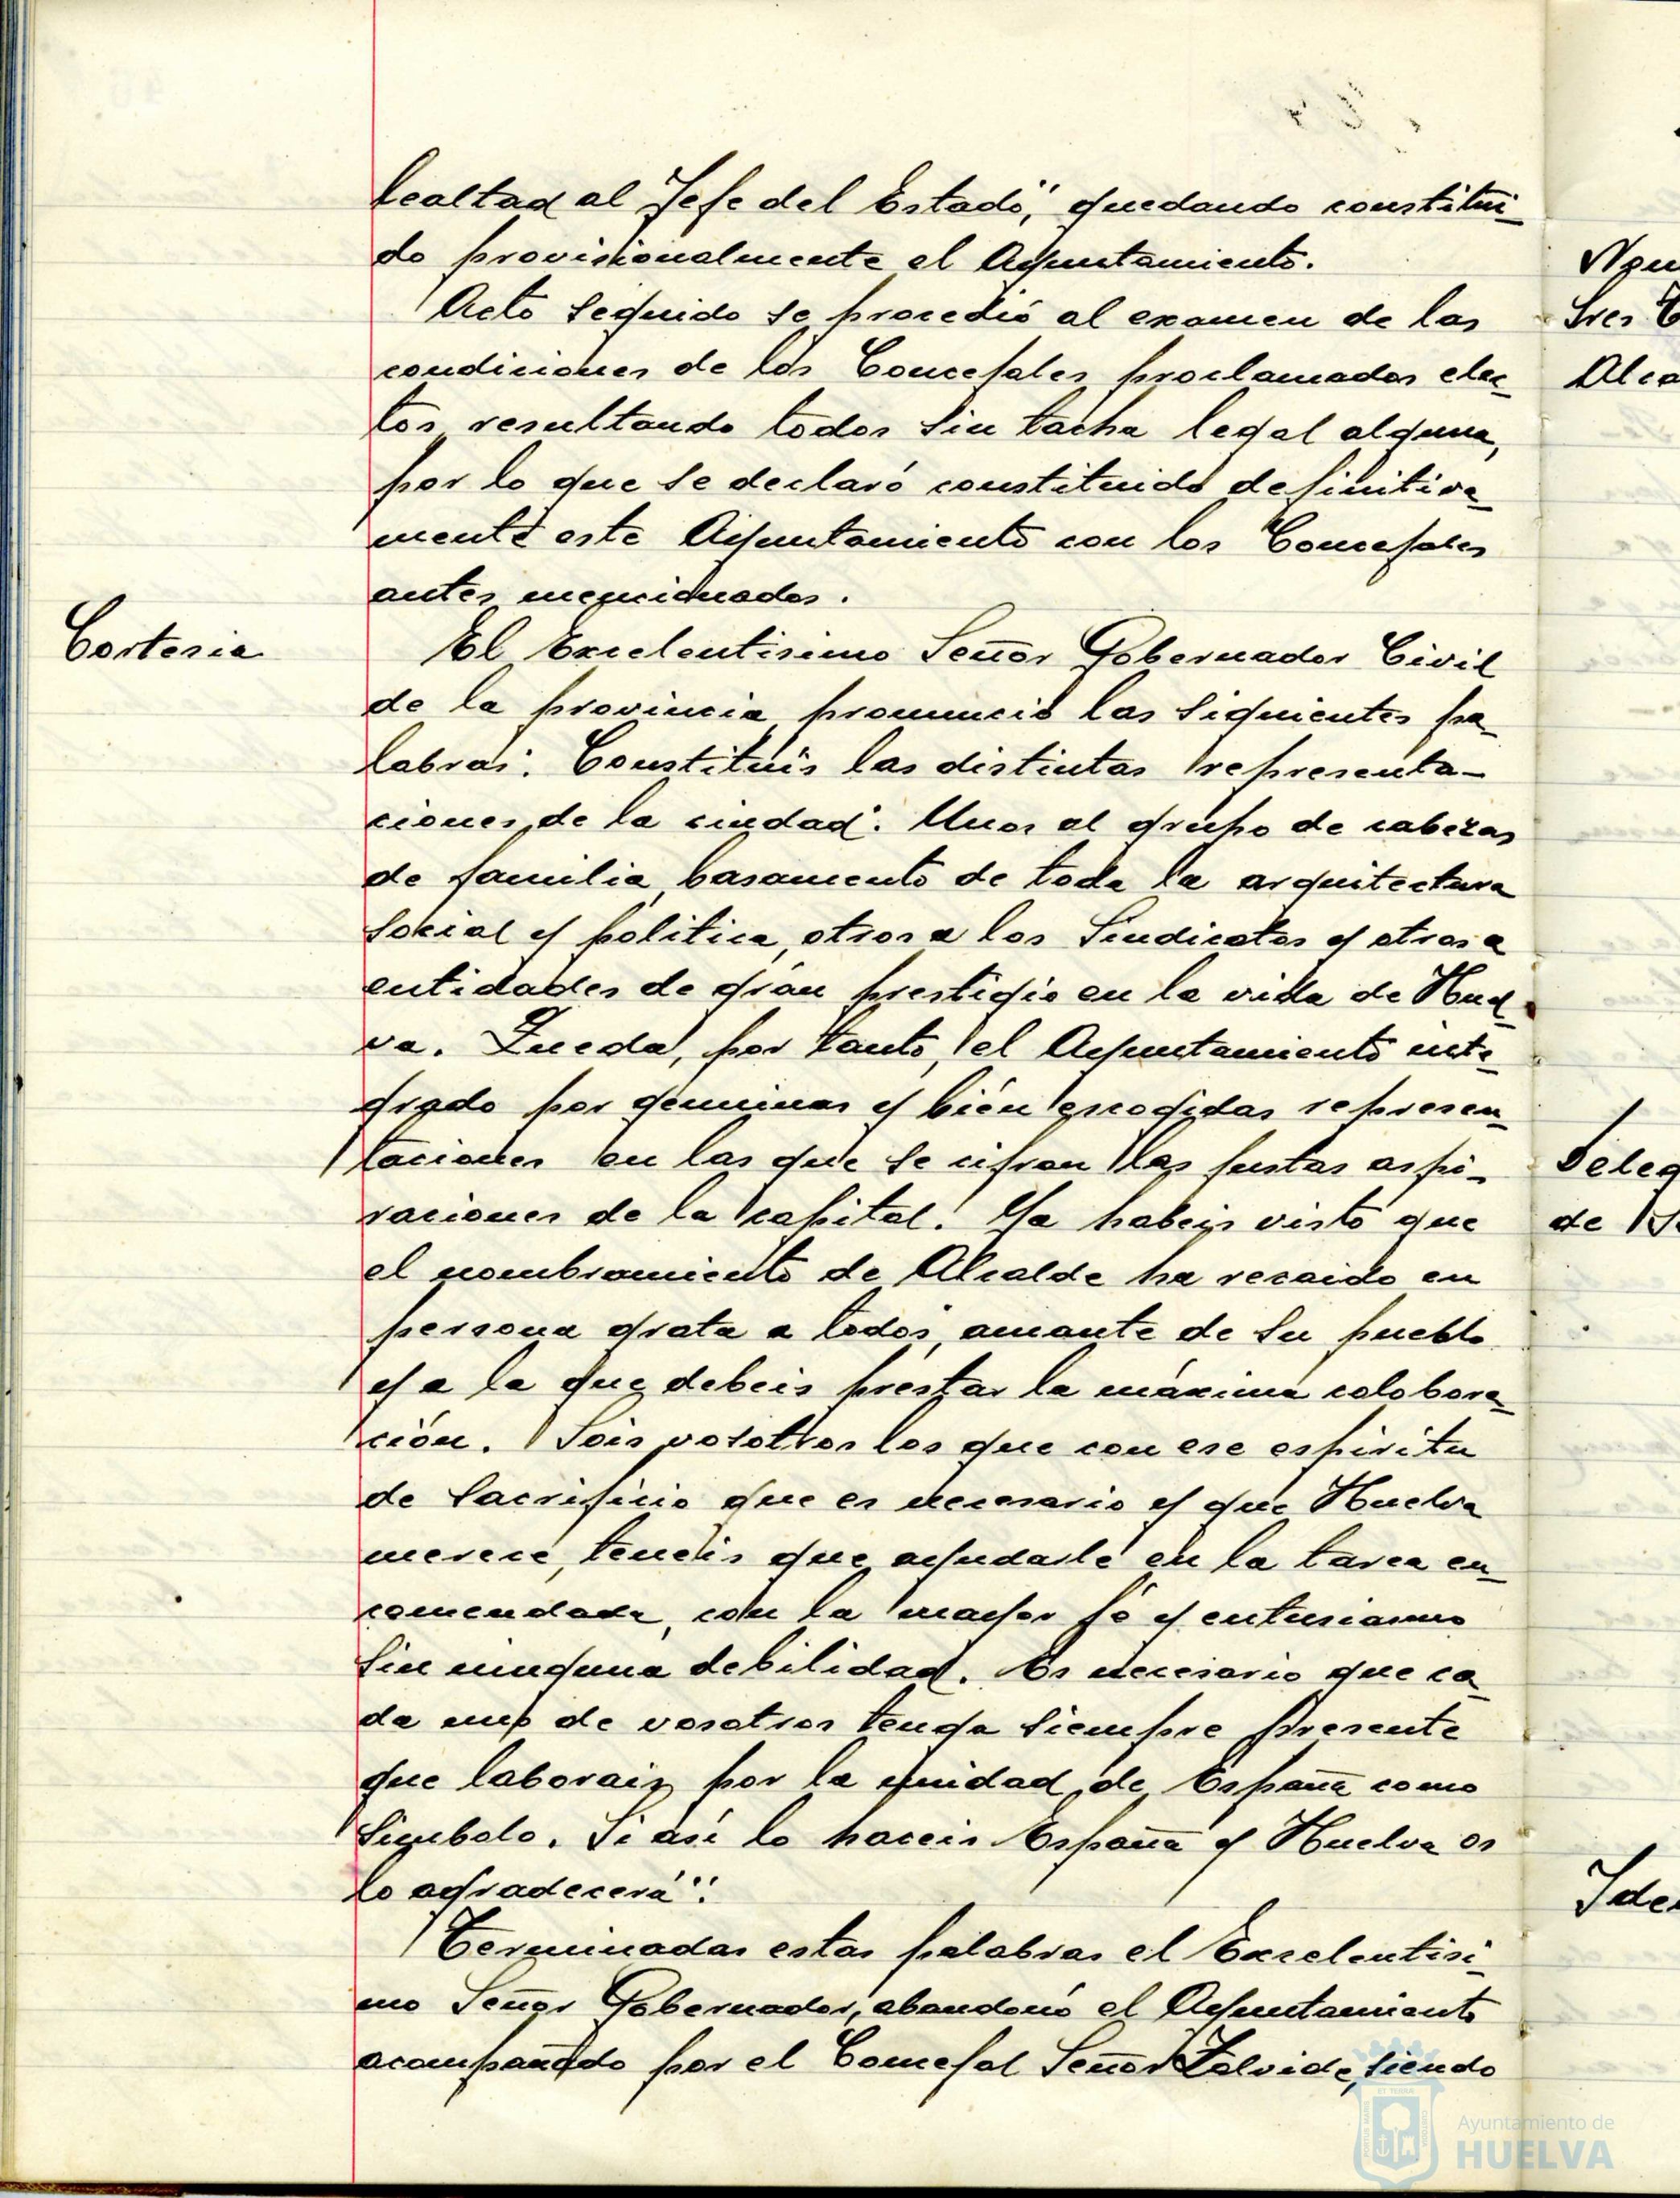 lealtad al Jefe del Estado", quedando constitui-
do provisionalmente el Ayuntamiento.
Acto seguido se procedió al examen de las
condiciones de los Concejales proclamados elec-
tos resultando todos sin tacha legal alguna,
por lo que se declaró constituido definitiva-
mente este Ayuntamiento con los Concejales
antes mencionados.
Cortesia
El Excelentisimo Señor Gobernador Civil
de la provincia pronunció las siguientes pa-
labras: Constituís las distintas representa-
ciones de la ciudad. Unos al grupo de cabezas
de familia, basamento de toda la arquitectura
social y politica, otros a los Sindicatos y otros a
entidades de gran prestigio en la vida de Huel-
va. Queda, por tanto, el Ayuntamiento inte-
grado por genuinas y bién escogidas represen-
taciones en las que se cifran las justas aspi-
raciones de la capital. Ya habeis visto que
el nombramiento de Alcalde ha recaido en
persona grata a todos, amante de su pueblo
y a la que debeis prestar la máxima colabora-
ción. Sois vosotros los que con ese espiritu
de sacrificio que es necesario y que Huelva
merece, teneis que ayudarle en la tarea en-
comendada, con la mayor fé y entusiasmo
sin ninguna debilidad. Es necesario que ca-
da uno de vosotros tenga siempre presente
que laborais por la unidad de España como
simbolo. Si así lo haceis España y Huelva os
lo agradecerá".
Terminadas estas palabras el Excelentisi-
mo Señor Gobernador, abandonó el Ayuntamiento
acompañado por el Concejal Señor Zalvide, siendo
Sres
Alca
Deleg
de
Ide
Ayuntamiento de
HUELVA